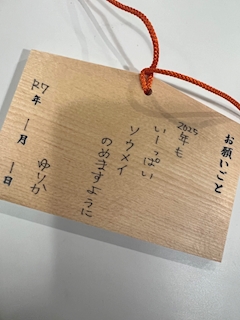 お願いごと
2025年も
いーっぱい
ソウメイ
のめますように
ゆりか
R7年 1月 1日